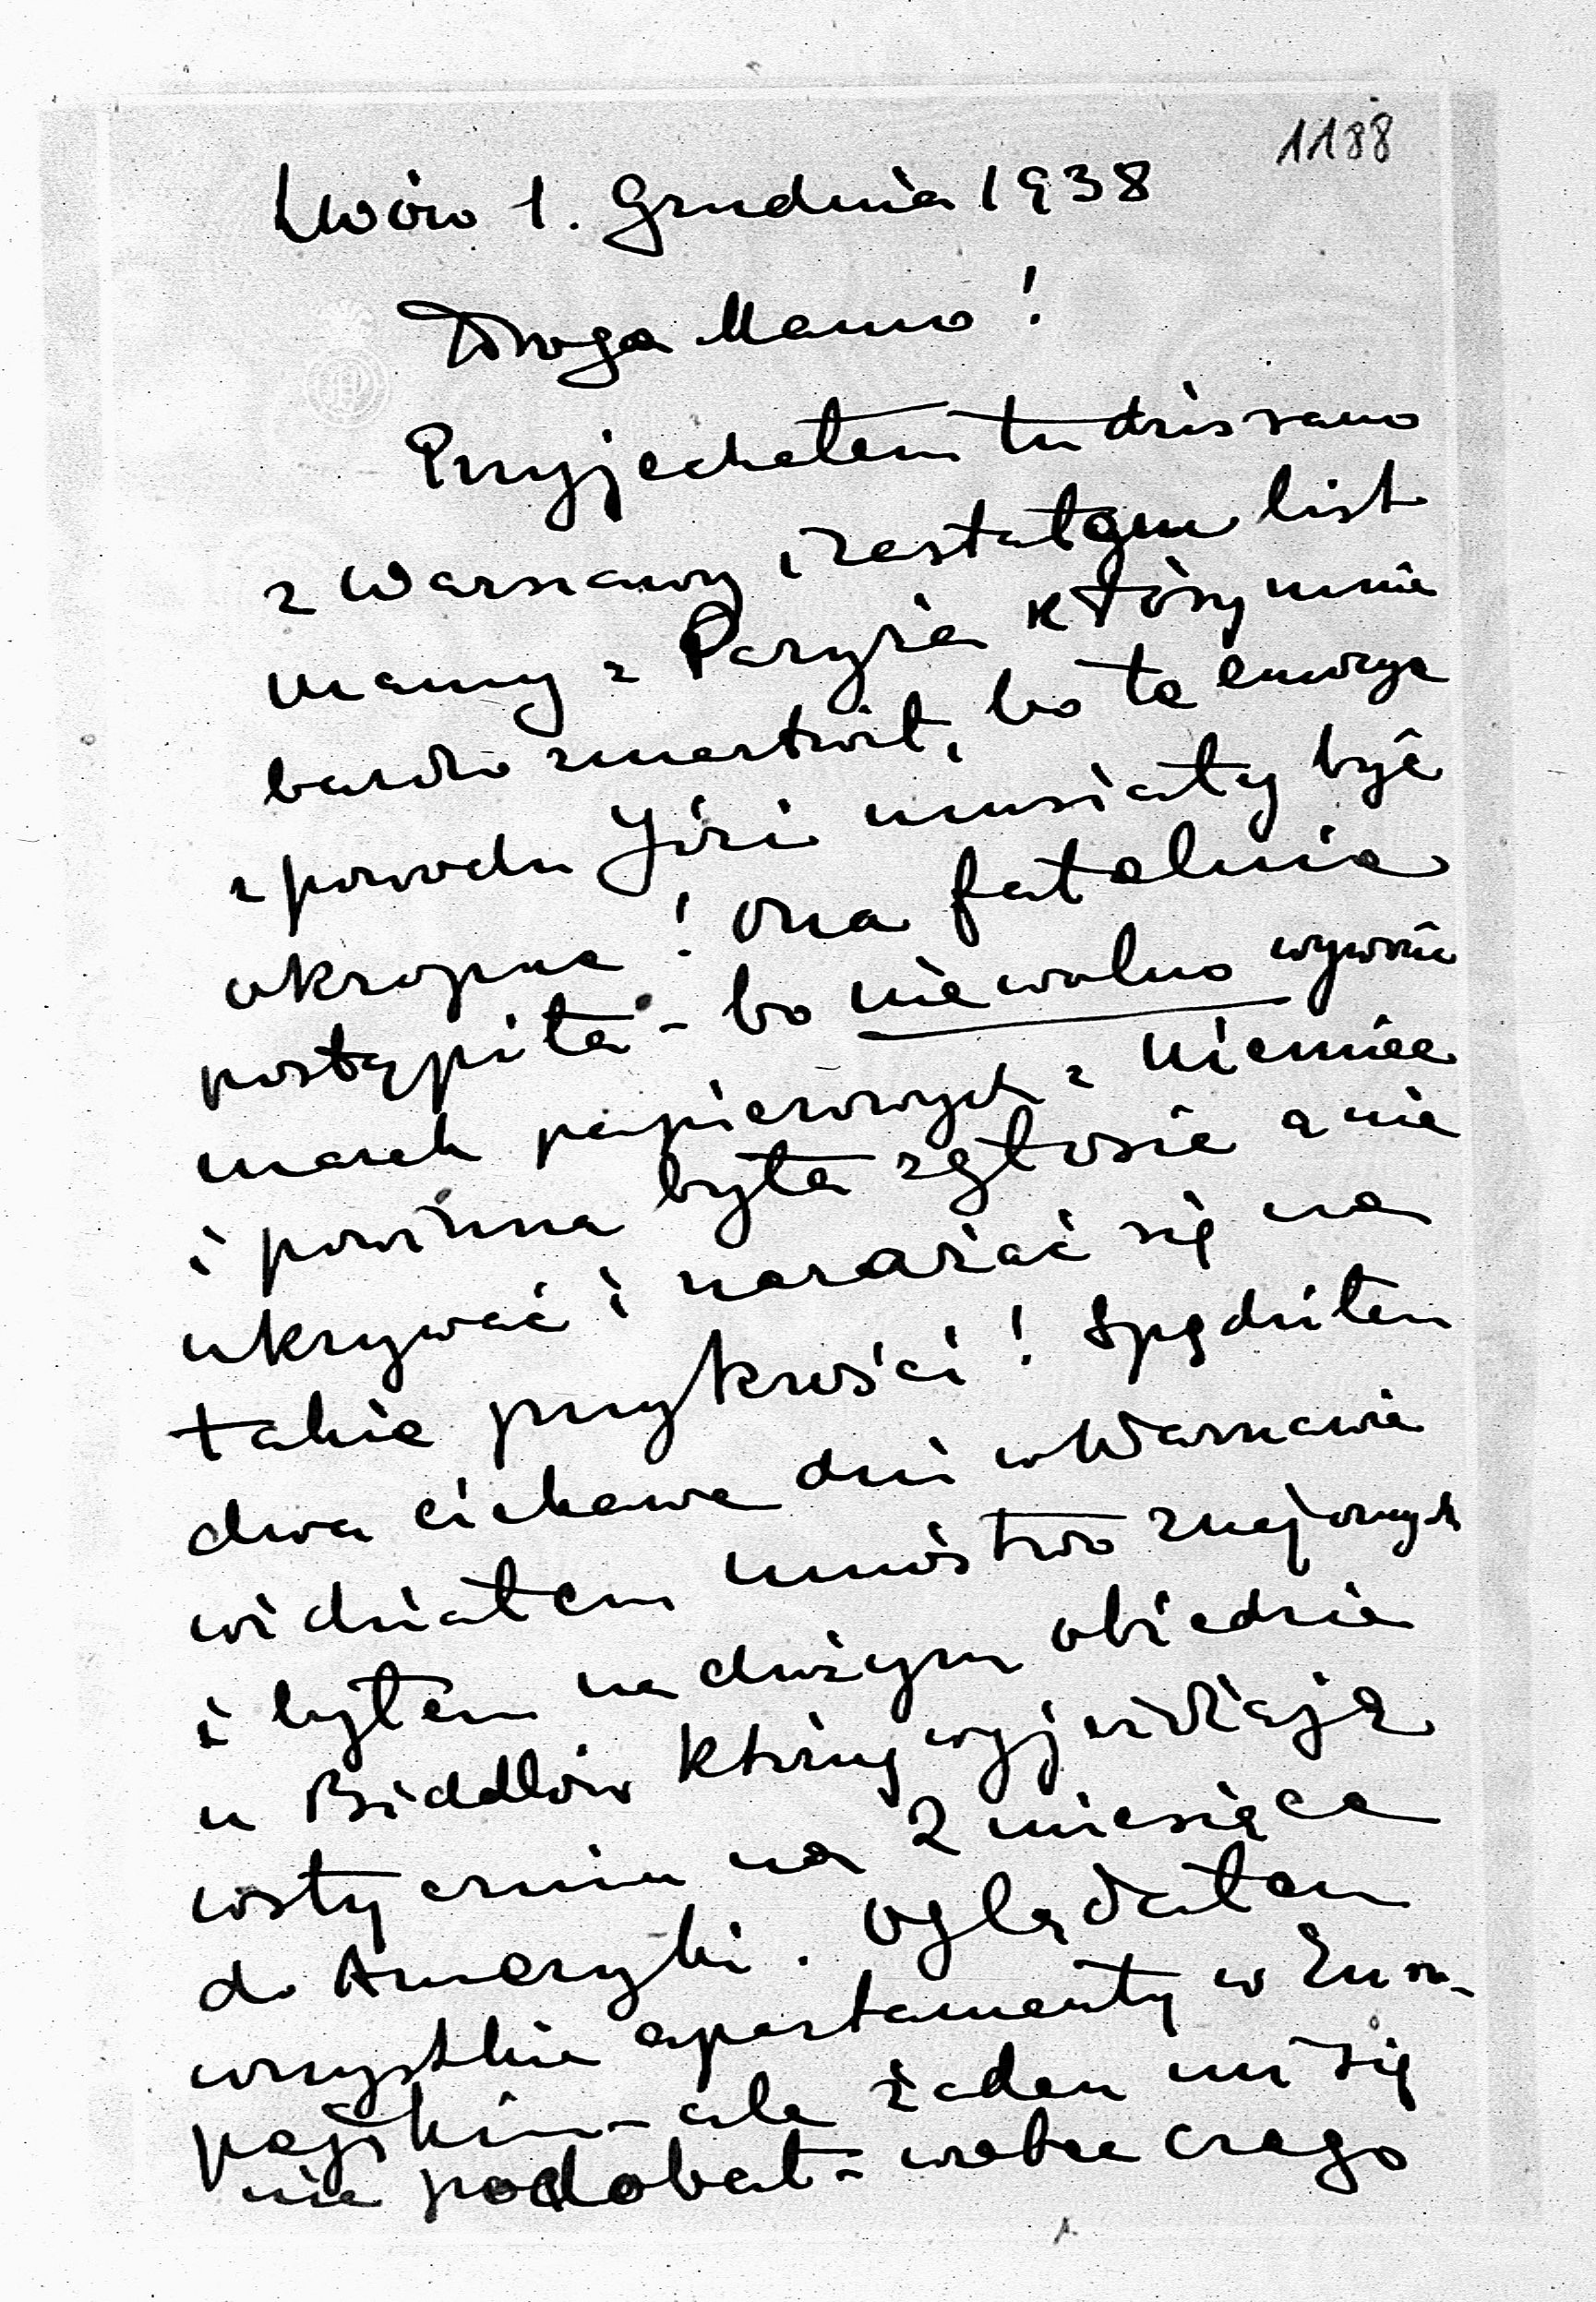 1188
Lwów 1. Grudnia 1938
Droga Mamo!
Przyjechałem tu dziś rano
z Warszawy, i zastałem list
Mamy z Paryża który mnie
bardzo zmartwił, bo te emocye
z powodu Józi musiały być
okropne! Ona fatalnie
postąpiła - bo nie wolno wywozić
marek papierowych z Niemiec
i powinna była zgłosić a nie
ukrywać i narażać się na
takie przykrości! Spędziłem
dwa ciekawe dni w Warszawie
widziałem mnóstwo znajomych
i byłem na dużym obiedzie
u Biddlów którzy wyjeżdżają
w styczniu na 2 miesiące
do Ameryki. Oglądałem
wszystkie apartamenty w Euro-
pejskim - ale żaden mi się
nie podobał - wobec czego